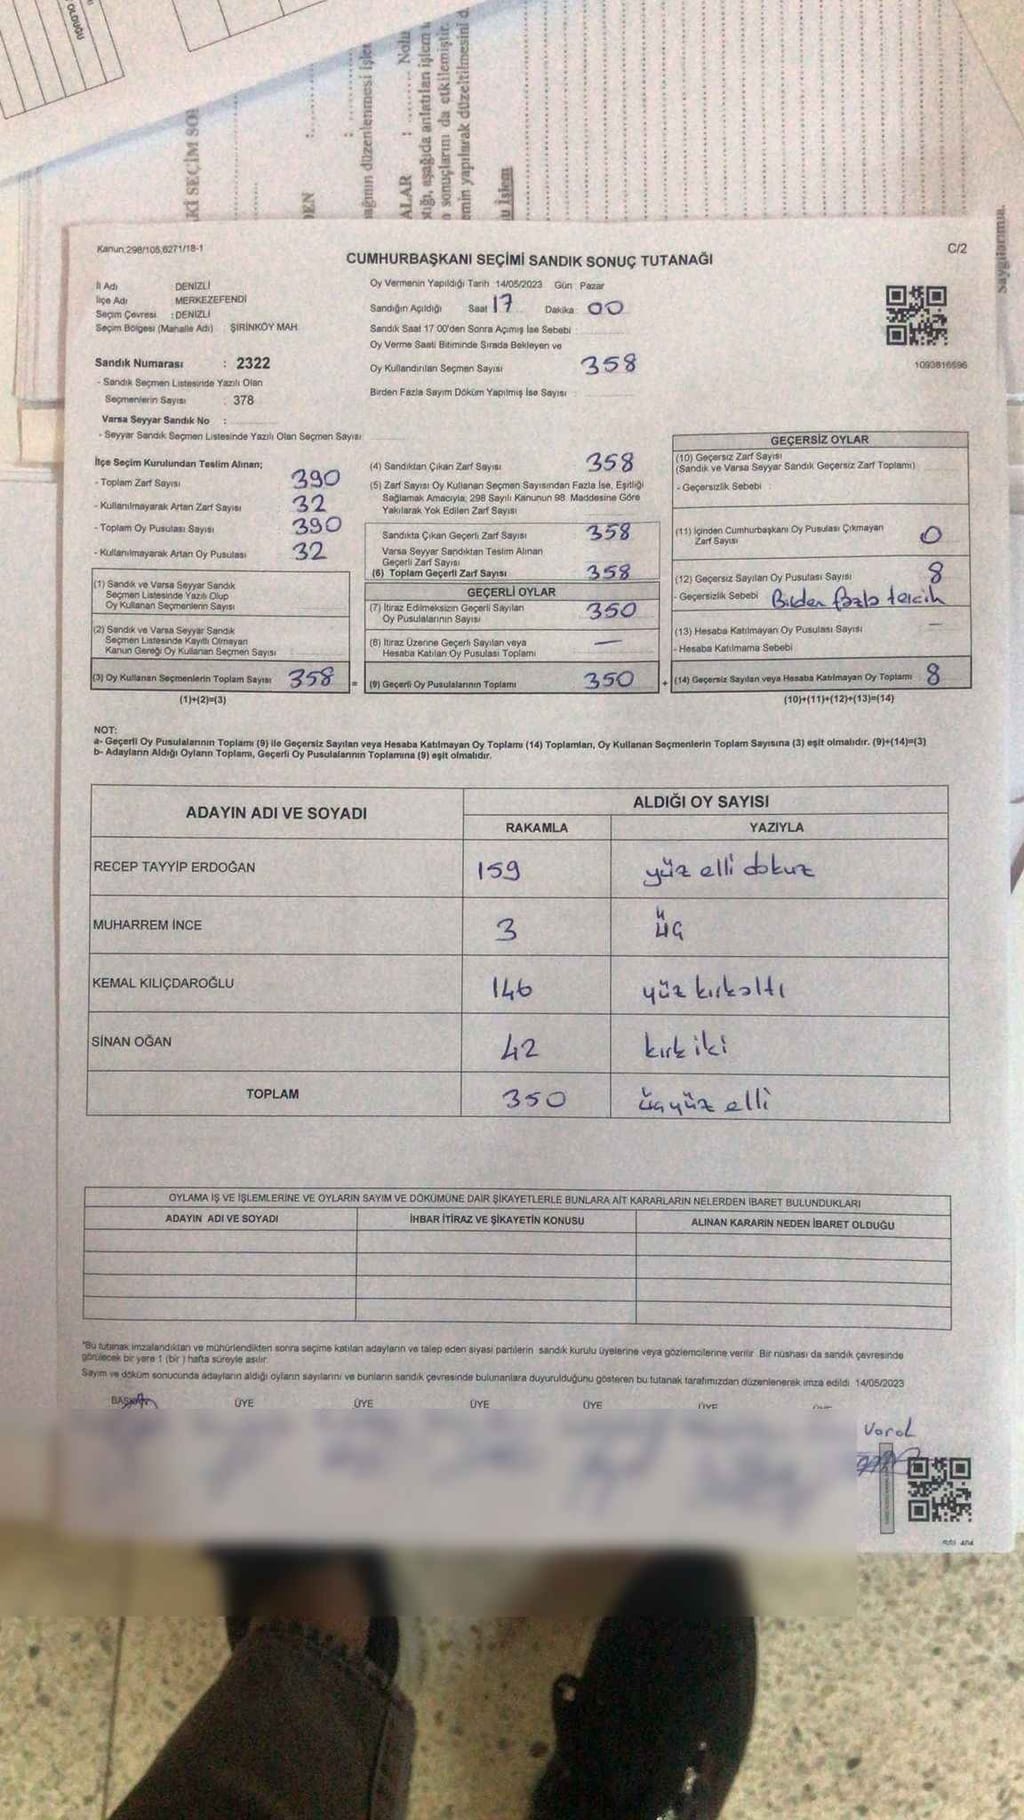 OLDUĞU
Kanun,298/105,6271/18-1
C/2
CUMHURBAŞKANI SEÇİMİ SANDIK SONUÇ TUTANAĞI
İl Adı DENİZLİ
İlçe Adı MERKEZEFENDİ
Seçim Çevresi : DENİZLİ
Seçim Bölgesi (Mahalle Adı) ŞİRİNKÖY MAH
Sandık Numarası : 2322
- Sandık Seçmen Listesinde Yazılı Olan
Seçmenlerin Sayısı : 378
Varsa Seyyar Sandık No :
- Seyyar Sandık Seçmen Listesinde Yazılı Olan Seçmen Sayısı
Oy Vermenin Yapıldığı Tarih 14/05/2023 Gün Pazar
Sandığın Açıldığı Saat 17 Dakika 00
Sandık Saat 17 00'den Sonra Açımış İse Sebebi
Oy Verme Saati Bitiminde Sırada Bekleyen ve
Oy Kullandırılan Seçmen Sayısı 358
Birden Fazla Sayım Döküm Yapılmış İse Sayısı :
1093816596
İlçe Seçim Kurulundan Teslim Alınan;
- Toplam Zarf Sayısı 390
- Kullanılmayarak Artan Zarf Sayısı 32
- Toplam Oy Pusulası Sayısı 390
- Kullanılmayarak Artan Oy Pusulası 32
(1) Sandık ve Varsa Seyyar Sandık
Seçmen Listesinde Yazılı Olup
Oy Kullanan Seçmenlerin Sayısı
(2) Sandık ve Varsa Seyyar Sandık
Seçmen Listesinde Kayıtlı Olmayan
Kanun Gereği Oy Kullanan Seçmen Sayısı
(3) Oy Kullanan Seçmenlerin Toplam Sayısı 358 =
(1)+(2)=(3)
(4) Sandıktan Çıkan Zarf Sayısı 358
(5) Zarf Sayısı Oy Kullanan Seçmen Sayısından Fazla İse, Eşitliği
Sağlamak Amacıyla, 298 Sayılı Kanunun 98. Maddesine Göre
Yakılarak Yok Edilen Zarf Sayısı
Sandıkta Çıkan Geçerli Zarf Sayısı 358
Varsa Seyyar Sandıktan Teslim Alınan
Geçerli Zarf Sayısı
(6) Toplam Geçerli Zarf Sayısı 358
GEÇERLİ OYLAR
(7) İtiraz Edilmeksizin Geçerli Sayılan
Oy Pusulalarının Sayısı 350
(8) İtiraz Üzerine Geçerli Sayılan veya
Hesaba Katılan Oy Pusulası Toplamı —
(9) Geçerli Oy Pusulalarının Toplamı 350 +
GEÇERSİZ OYLAR
(10) Geçersiz Zarf Sayısı
(Sandık ve Varsa Seyyar Sandık Geçersiz Zarf Toplamı)
- Geçersizlik Sebebi :
(11) İçinden Cumhurbaşkanı Oy Pusulası Çıkmayan
Zarf Sayısı 0
(12) Geçersiz Sayılan Oy Pusulası Sayısı 8
- Geçersizlik Sebebi Birden fazla tercih
(13) Hesaba Katılmayan Oy Pusulası Sayısı —
- Hesaba Katılmama Sebebi
(14) Geçersiz Sayılan veya Hesaba Katılmayan Oy Toplamı 8
(10)+(11)+(12)+(13)=(14)
NOT:
a- Geçerli Oy Pusulalarının Toplamı (9) ile Geçersiz Sayılan veya Hesaba Katılmayan Oy Toplamı (14) Toplamları, Oy Kullanan Seçmenlerin Toplam Sayısına (3) eşit olmalıdır. (9)+(14)=(3)
b- Adayların Aldığı Oyların Toplamı, Geçerli Oy Pusulalarının Toplamına (9) eşit olmalıdır.
ADAYIN ADI VE SOYADI
ALDIĞI OY SAYISI
RAKAMLA YAZIYLA
RECEP TAYYİP ERDOĞAN 159 yüz elli dokuz
MUHARREM İNCE 3 üç
KEMAL KILIÇDAROĞLU 146 yüz kırkaltı
SİNAN OĞAN 42 kırk iki
TOPLAM 350 üçyüz elli
OYLAMA İŞ VE İŞLEMLERİNE VE OYLARIN SAYIM VE DÖKÜMÜNE DAİR ŞİKAYETLERLE BUNLARA AİT KARARLARIN NELERDEN İBARET BULUNDUKLARI
ADAYIN ADI VE SOYADI İHBAR İTİRAZ VE ŞİKAYETİN KONUSU ALINAN KARARIN NEDEN İBARET OLDUĞU
*Bu tutanak imzalandıktan ve mühürlendikten sonra seçime katılan adayların ve talep eden siyasi partilerin sandık kurulu üyelerine veya gözlemcilerine verilir. Bir nüshası da sandık çevresinde
görülecek bir yere 1 (bir) hafta süreyle asılır.
Sayım ve döküm sonucunda adayların aldığı oyların sayılarını ve bunların sandık çevresinde bulunanlara duyurulduğunu gösteren bu tutanak tarafımızdan düzenlenerek imza edildi. 14/05/2023
BAŞKAN ÜYE ÜYE ÜYE ÜYE ÜYE
Varol